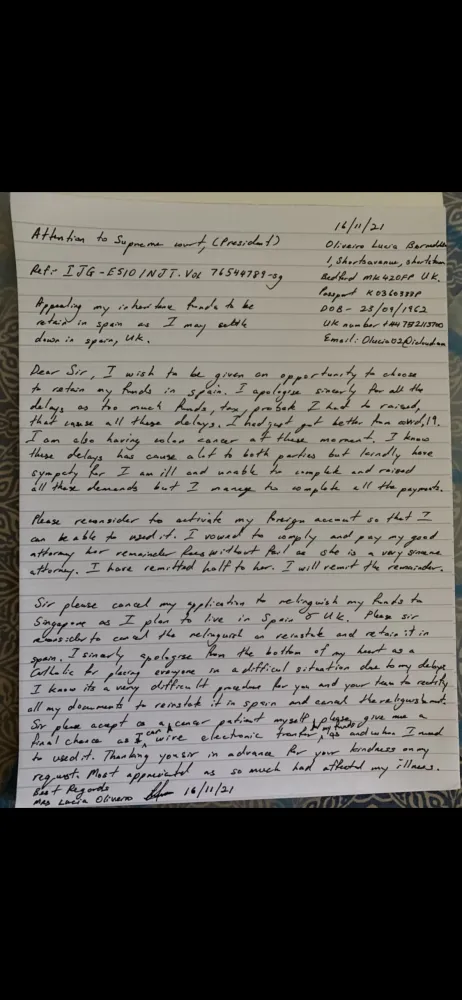 16/11/21
Attention to Supreme court, (President)
Oliveiro Lucia Bernadette
1, Shortoavenue, shortstown
Ref:- IJG-ES10/NJT. Vol 76549789-sg
Bedford MK420FP U.K.
Passport K0360338P
Appealing my inheritance funds to be
DOB - 23/09/1962
retain in spain as I may settle
down in spain, UK.
Email: Olucia02@icloud.com
Dear Sir, I wish to be given an opportunity to choose
to retain my funds in spain. I apologise sincerly for all the
delays as too much funds, tax, probate I had to raised,
that cause all these delays. I had just got better from covid,19.
I am also having colon cancer at these moment. I know
these delays has cause alot to both parties but kindly have
sympaty for I am ill and unable to complete and raised
all these demands but I manage to complete all the payments.
Please reconsider to activate my foreign account so that I
can be able to used it. I vowed to comply and pay my good
attorney her remainder fees without fail as she is a very sincere
attorney. I have remitted half to her. I will remit the remainder.
Sir please cancel my application to relinguish my funds to
Singapore as I plan to live in Spain & UK. Please sir
reconsider to cancel the relinguish an reinstate and retain it in
spain. I sincerly apologise from the bottom of my heart as a
Catholic for placing everyone in a difficult situation due to my delays
I know its a very difficult procedure for you and your team to rectify
all my documents to reinstate it in spain and cancel the
Sir please accept as a cancer patient myself, please give me a
final chance as I can wire electronic transfer my funds as and when I need
to used it. Thanking you sir in advance for your kindness on my
request. Most appreciated as so much had affected my illness.
Best Regards
Mrs Lucia Oliveiro 16/11/21